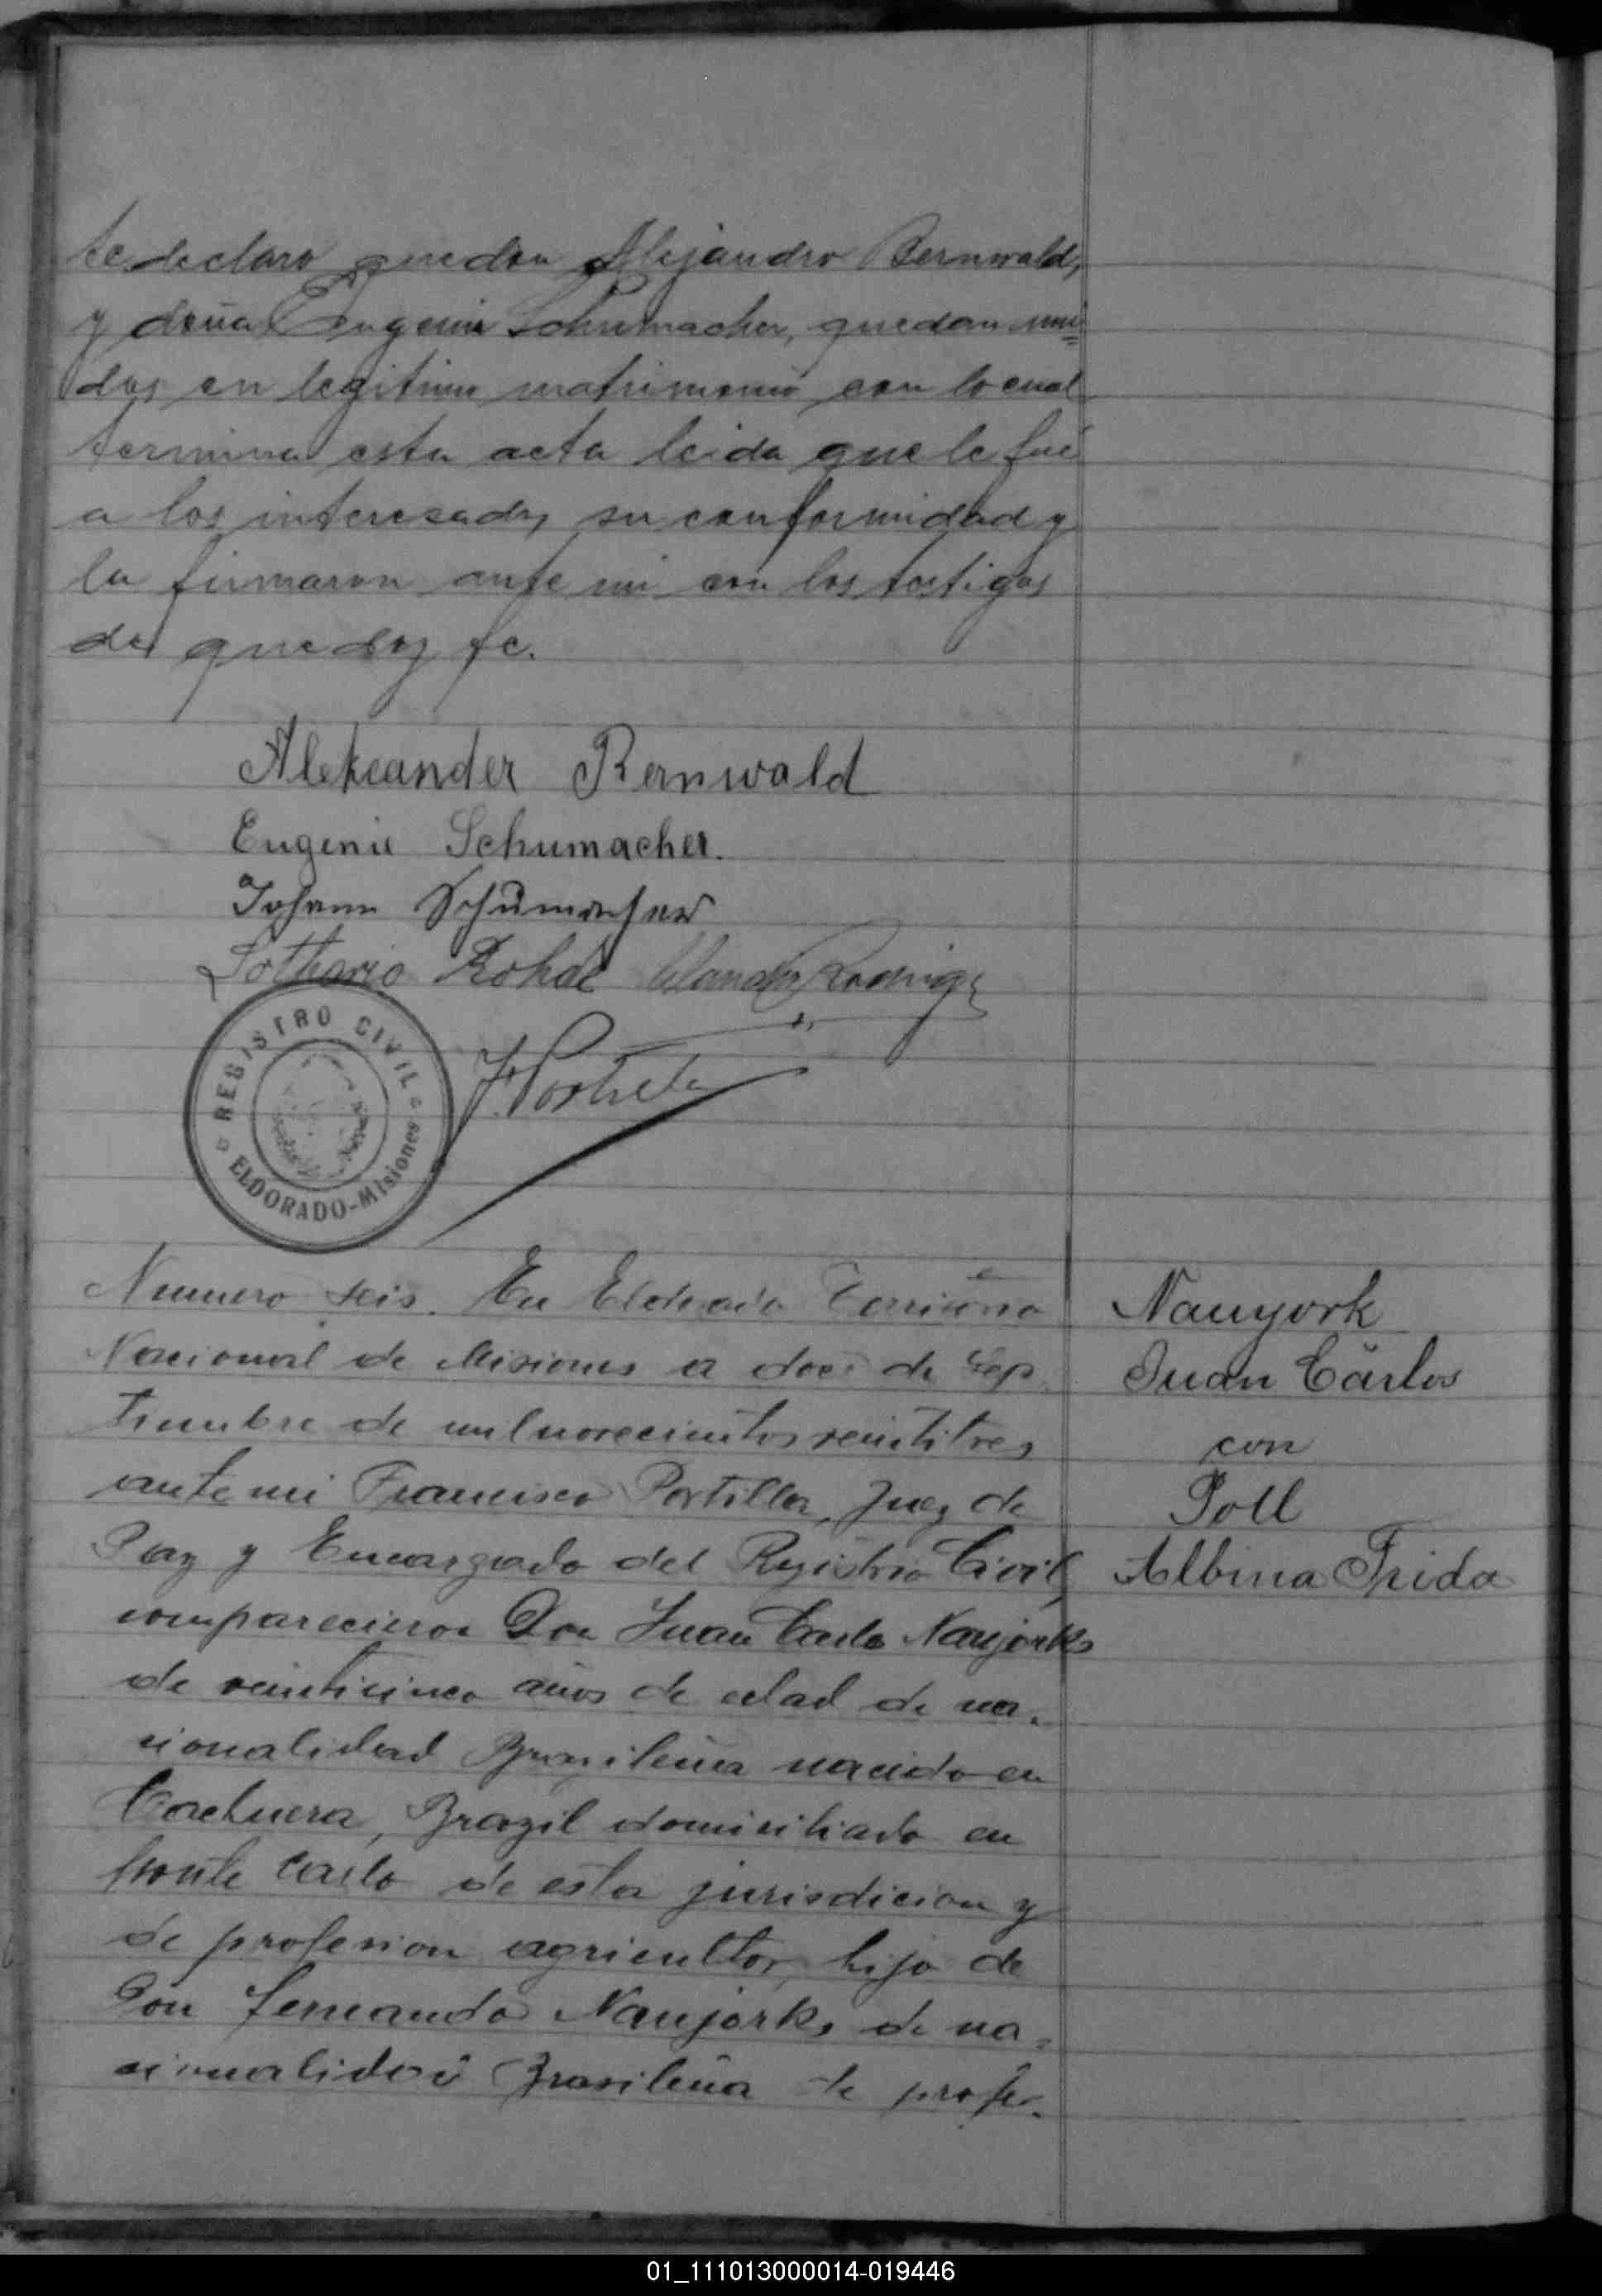 te declaro que don Alejandro Bernwald,
y doña Eugenia Schumacher, quedan uni=
dos en legitimo matrimonio con lo cual
termina esta acta leida que le fué
a los interesados su conformidad y
la firmaron ante mi con los testigos
de que doy fe.
Aleksander Bernwald
Eugenie Schumacher.
Johann Schumacher
Lothario Rohde
F. Portillo
REGISTRO CIVIL
ELDORADO-Misiones
Numero seis. En Eldorado Territorio
Nacional de Misiones a doce de Sep
tiembre de mil novecientos veintitres
ante mi Francisco Portillo, Juez de
Paz y Encargado del Registro Civil,
comparecieron Don Juan Carlos Naujorks
de veinticinco años de edad de na.
cionalidad Brazileña nacido en
Cachuera, Brazil domisiliado en
Monte Carlo de esta jurisdicion y
de profesion agricultor, hijo de
Don Fernando Naujorks de na=
cionalidad Brasileña de profe.
Nauyork
Juan Carlos
con
Poll
Albina Frida
01_111013000014-019446